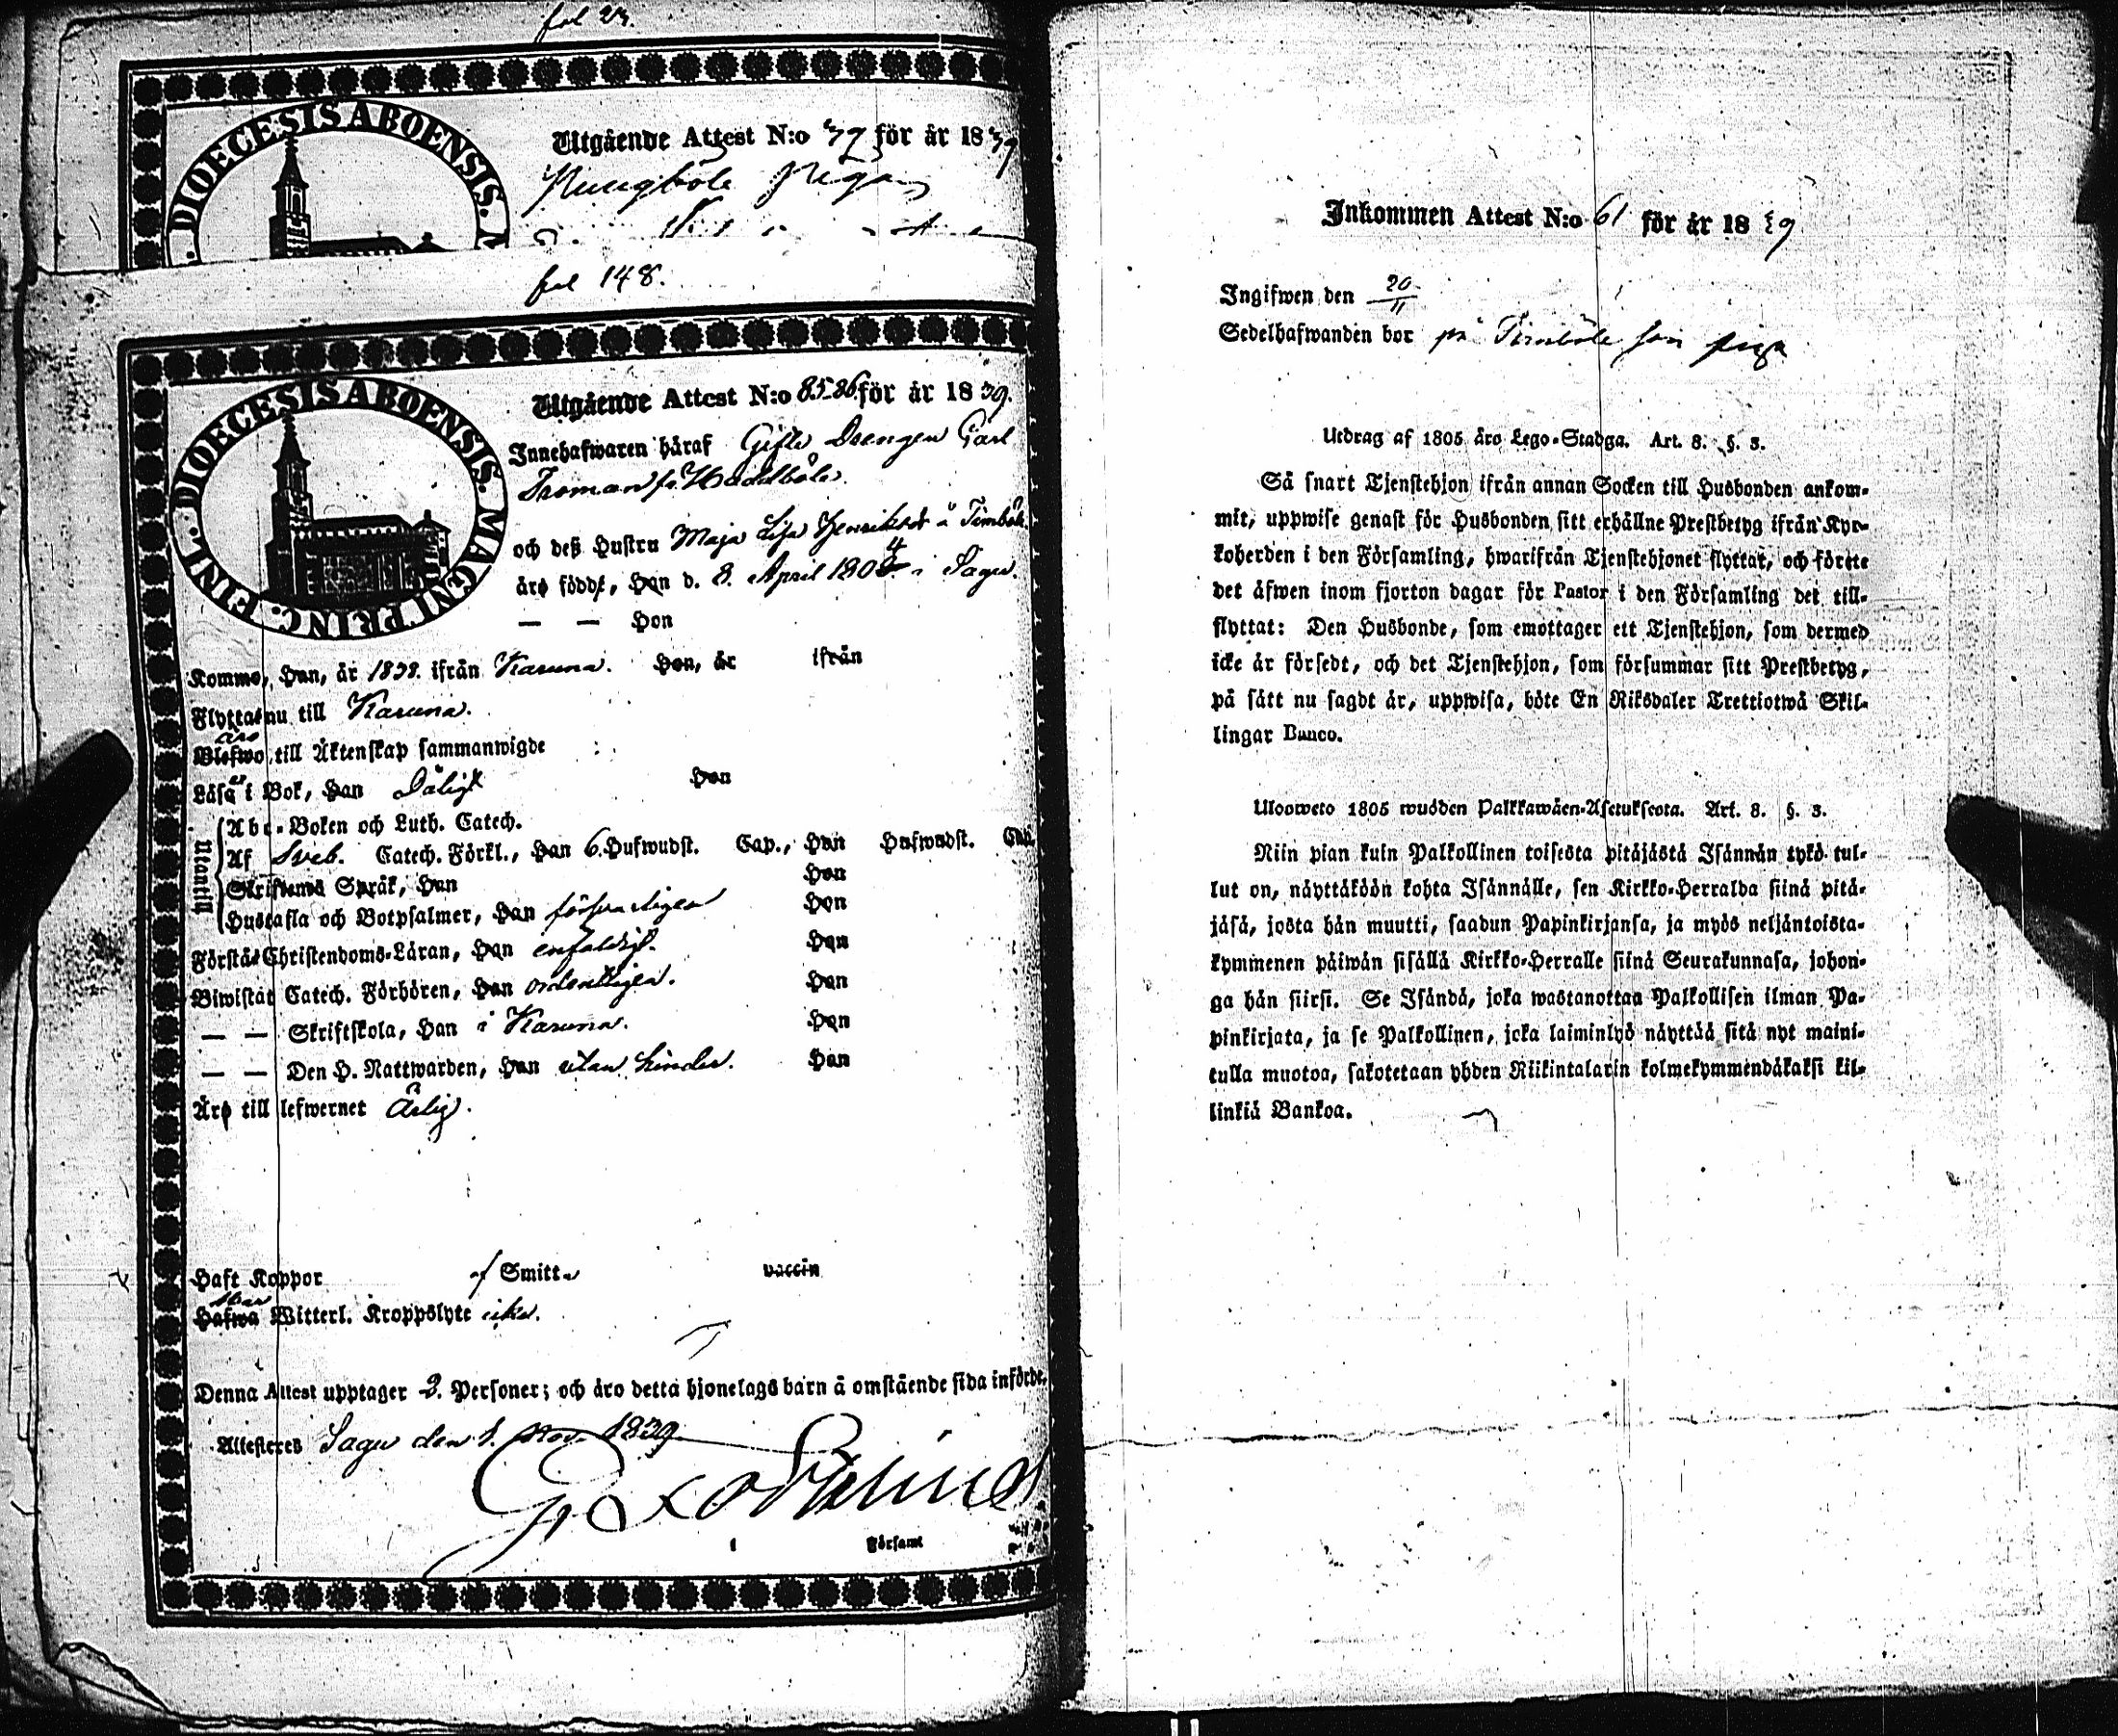 fol 23.
DIOECESIS ABOENSIS.
Utgående Attest N:o 39 för år 1839
Pungböle Pigan
fol 148.
DIOECESIS ABOENSIS. MAGNI PRINC. FINL.
Utgående Attest N:o 85-86 för år 1839.
Innehafwaren häraf Gifte Drengen Carl
Troman fr. Haddböle
och deß Hustru Maja Lisa Henriksdr å Timböle
äro född, Han d. 8. April 1804 i Sagu.
— — Hon
Komme, Han, år 1838. ifrån Karuna. Hon, år ifrån
Flyttas nu till Karuna.
äro
Blefwo till Äktenskap sammanwigde
Läsa i Bok, Han Dåligt Hon
Utantill
Abc-Boken och Luth. Catech.
Af Sveb. Catech. Förkl., Han 6. Hufwudst. Cap., Hon Hufwudst. Cap.
Skriftens Språk, Han Hon
Hustafla och Botpsalmer, Han försvarligen Hon
Förstå Christendoms-Läran, Han enfaldigt. Hon
Biwistat Catech. Förhören, Han ordentligen. Hon
— — Skriftskola, Han i Karuna. Hon
— — Den H. Nattwarden, Han utan hinder. Hon
Äro till lefwernet Ärlig.
Haft Koppor af Smitta vaccin
Hafwa Witterl. Kroppslyte icke.
Denna Attest upptager 2. Personer; och äro detta hjonelags barn å omstående sida införde.
Attesteras Sagu den 1. Nov. 1839
i Församl
Inkommen Attest N:o 61 för år 1839
Ingifwen den 20/11
Sedelhafwanden bor på Timböle som piga
Utdrag af 1805 års Lego-Stadga. Art. 8. §. 3.
Så snart Tjenstehjon ifrån annan Socken till Husbonden ankom-
mit, uppwise genast för Husbonden sitt erhållne Prestbetyg ifrån Kyr-
koherden i den Församling, hwarifrån Tjenstehjonet flyttat, och förete
det äfwen inom fjorton dagar för Pastor i den Församling det till-
flyttat: Den Husbonde, som emottager ett Tjenstehjon, som dermed
icke är försedt, och det Tjenstehjon, som försummar sitt Prestbetyg,
på sätt nu sagdt är, uppwisa, böte En Riksdaler Trettiotwå Skil-
lingar Banco.
Uloosweto 1805 wuoden Palkkawäen-Asetuksesta. Art. 8. §. 3.
Niin pian kuin Palkollinen toisesta pitäjästä Isännän tykö tul-
lut on, näyttäköön kohta Isännälle, sen Kirkko-Herralda siinä pitä-
jäsä, josta hän muutti, saadun Papinkirjansa, ja myös neljäntoista-
kymmenen päiwän sisällä Kirkko-Herralle siinä Seurakunnasa, johon-
ga hän siirsi. Se Isändä, joka wastanottaa Palkollisen ilman Pa-
pinkirjata, ja se Palkollinen, joka laiminlyö näyttää sitä nyt maini-
tulla muotoa, sakotetaan yhden Riikintalarin kolmekymmendäkaksi kil-
linkiä Bankoa.